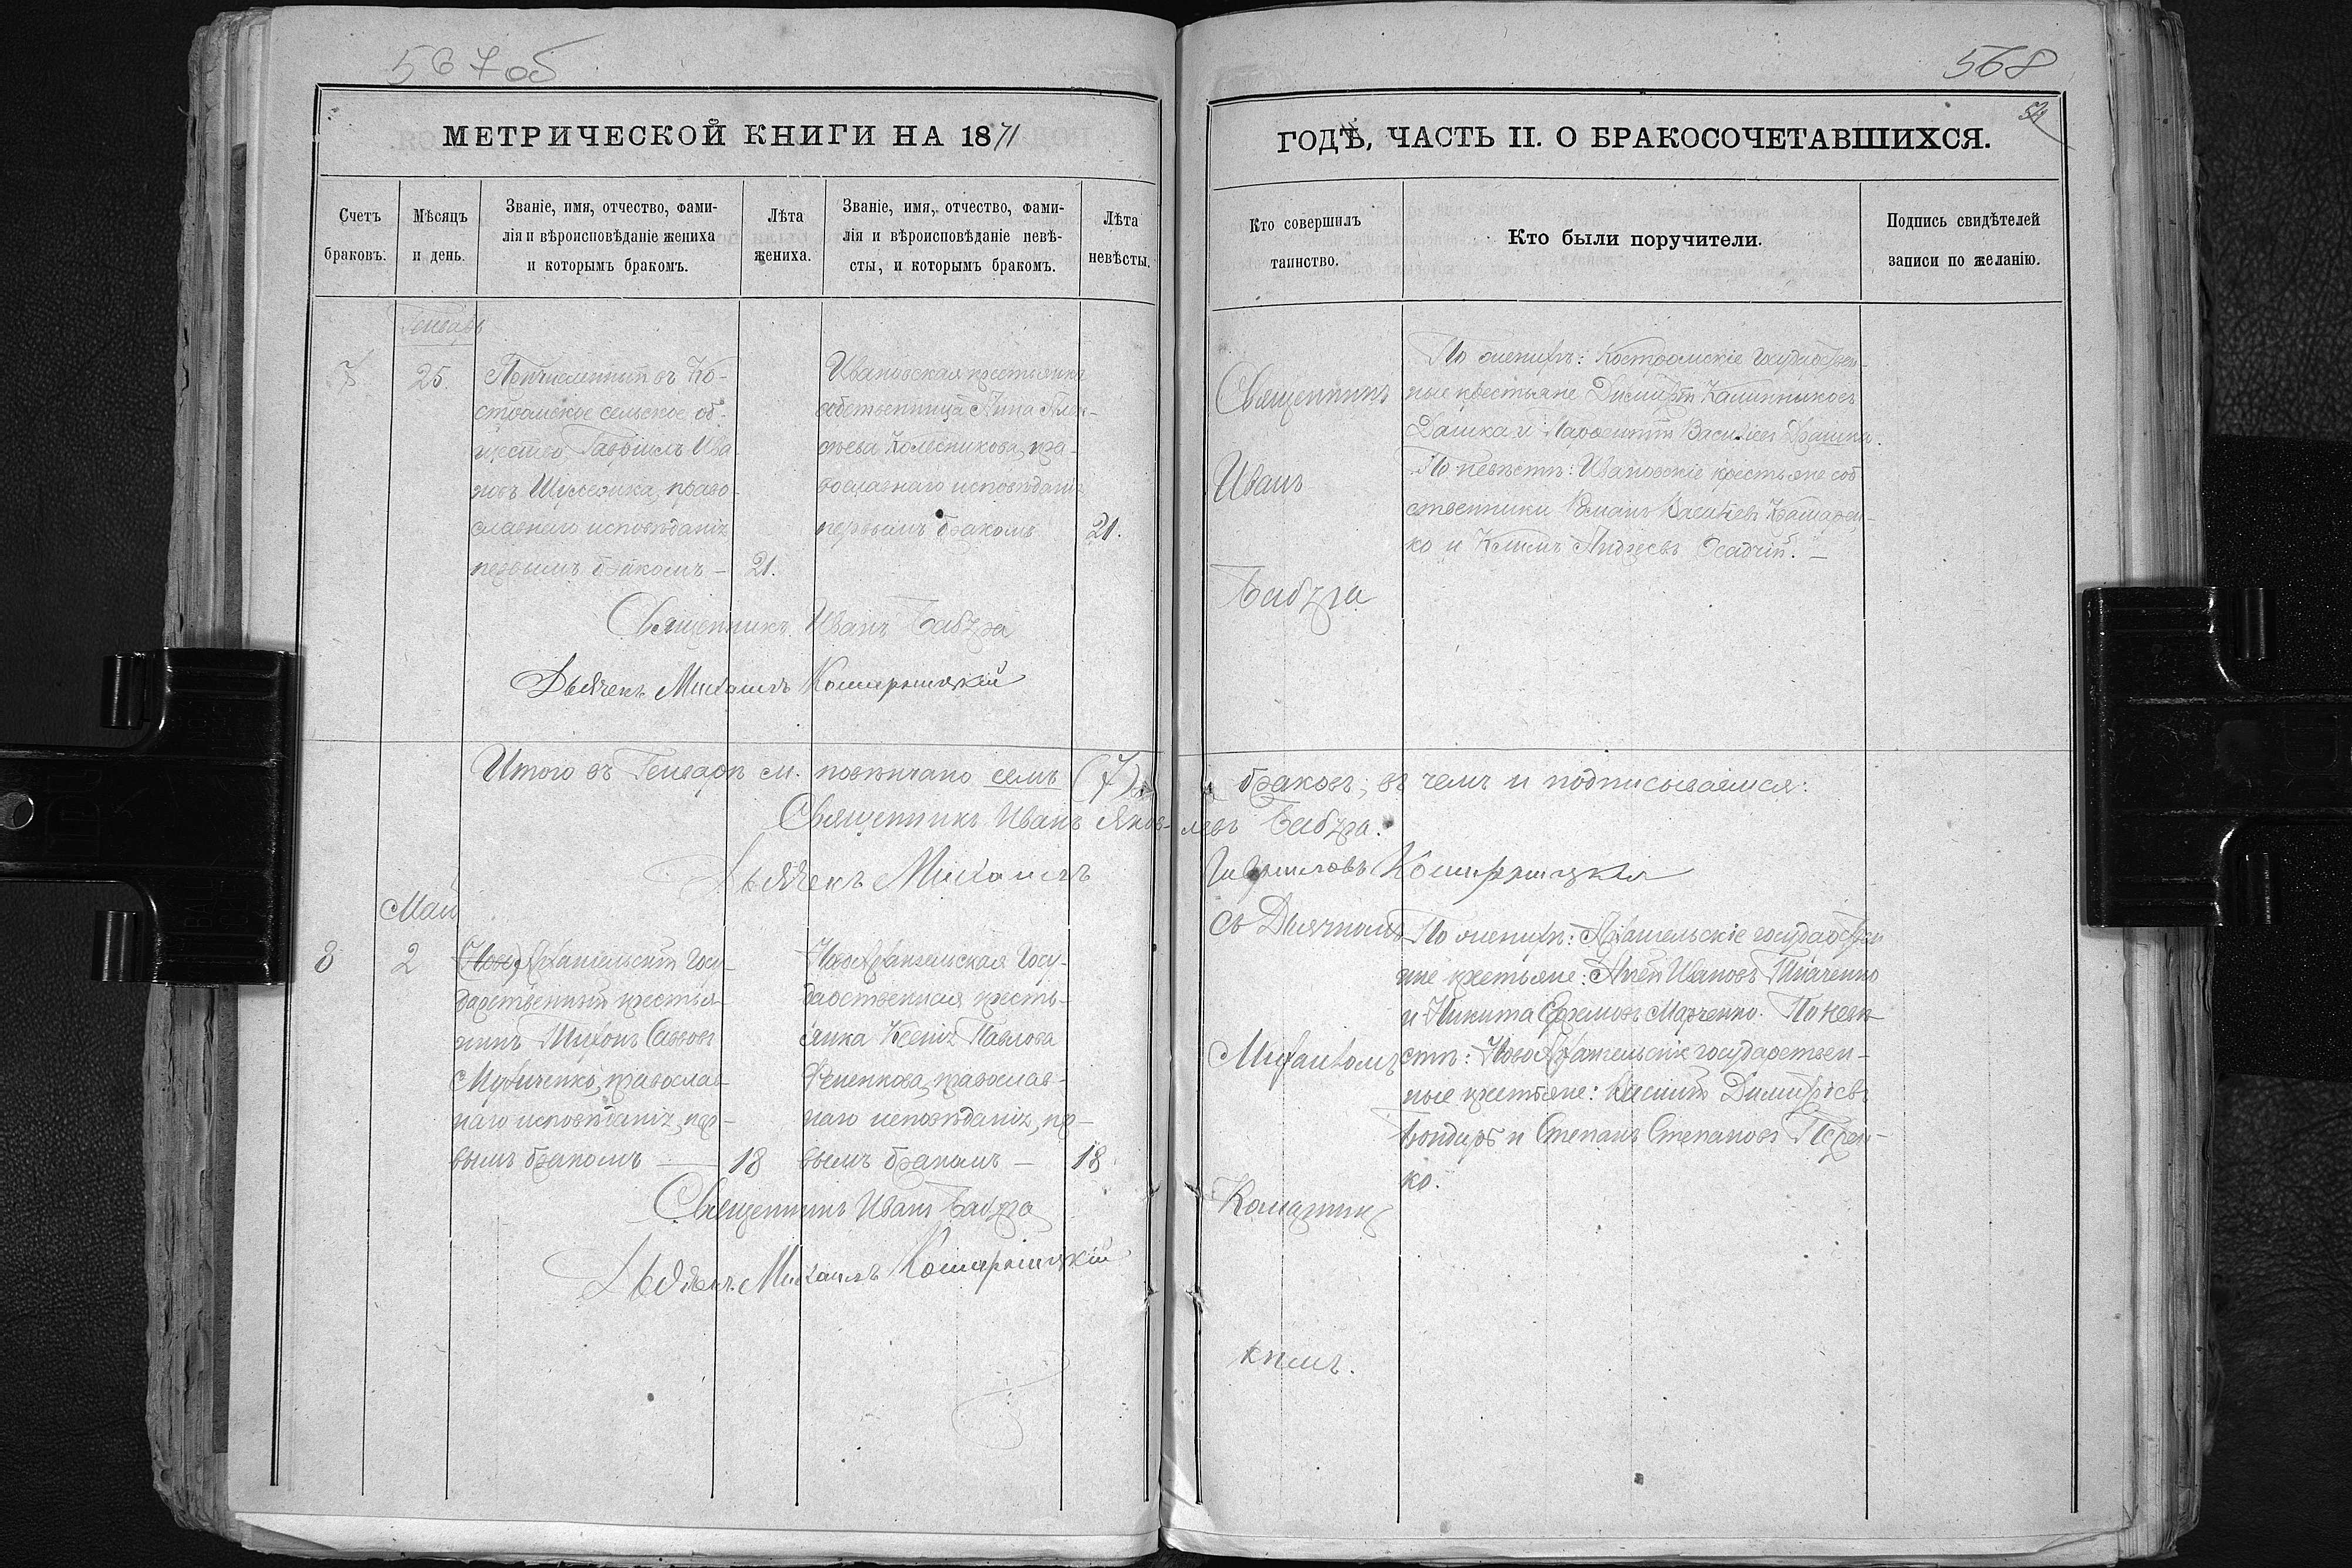 567 об
568
54
МЕТРИЧЕСКОЙ КНИГИ НА 1871
ГОДѢ, ЧАСТЬ II. О БРАКОСОЧЕТАВШИХСЯ.
Счетъ
браковъ.
Мѣсяцъ
и день.
Званіе, имя, отчество, фами-
лія и вѣроисповѣданіе жениха
и которымъ бракомъ.
Лѣта
жениха.
Званіе, имя, отчество, фами-
лія и вѣроисповѣданіе невѣ-
сты, и которымъ бракомъ.
Лѣта
невѣсты.
Кто совершилъ
таинство.
Кто были поручители.
Подпись свидѣтелей
записи по желанію.
Генварь
7
25.
Причисленный въ Ко-
стромское сельское об-
щество Гавріилъ Ива
новъ право-
славнаго исповѣданія
первымъ бракомъ —
21.
Ивановская крестьянка
собственница Анна
Колесникова, пра-
вославнаго исповѣданія
первымъ бракомъ
21.
Священникъ
Иванъ
Бабура
По женихѣ: Костромскіе государствен-
ные крестьяне Димитрій Калинниковъ
Дашка и Василіевъ
По невѣстѣ: Ивановскіе крестьяне соб
ственники Романъ Василіевъ
ко и Климъ Андреевъ Осадчій. —
Священникъ Иванъ Бабура
Дьячекъ Михаилъ
Итого въ Генварѣ м. повѣнчано семъ (7)
браковъ, въ чемъ и подписываемся:
Священникъ Иванъ Яков-
левъ Бабура.
Дьячекъ Михаилъ
Гавриловъ
Май
8
2
Архангельскій Госу-
дарственный крестья-
нинъ Тихонъ Саввовъ
православ-
наго исповѣданія, пер-
вымъ бракомъ —
18
НовоАрхангельская Госу-
дарственная кресть-
янка Ксенія Павлова
православ-
наго исповѣданія, пер-
вымъ бракомъ —
18
съ Дьячкомъ
Михаиломъ
кимъ.
По женихѣ: Архангельскіе государствен
ные крестьяне: Ивановъ Ткаченко
и Никита Ефремовъ Марченко. По невѣ-
стѣ: НовоАрхангельскіе государствен-
ные крестьяне: Василій Димитріевъ
Бондарь и Степанъ Степановъ
ко.
Священникъ Иванъ Бабура
Дьячекъ Михаилъ